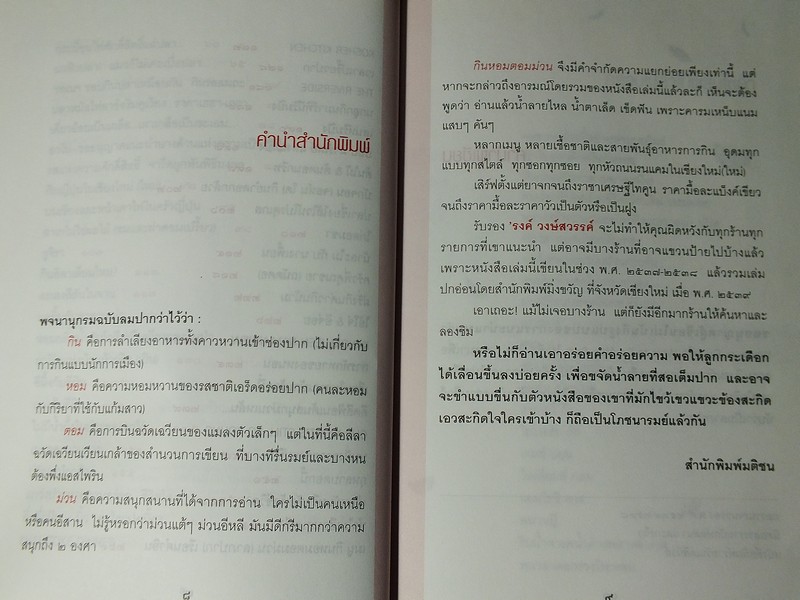 คำนำสำนักพิมพ์
พจนานุกรมฉบับลมปากว่าไว้ว่า :
กิน คือการลำเลียงอาหารทั้งคาวหวานเข้าช่องปาก (ไม่เกี่ยวกับ
การกินแบบนักการเมือง)
หอม คือความหอมหวานของรสชาติเอร็ดอร่อยปาก (คนละหอม
กับกิริยาที่ใช้กับแก้มสาว)
ตอม คือการบินฉวัดเฉวียนของแมลงตัวเล็กๆ แต่ในที่นี้คือลีลา
ฉวัดเฉวียนเวียนเกล้าของสำนวนการเขียน ที่บางทีรื่นรมย์และบางหน
ต้องพึ่งแอสไพริน
ม่วน คือความสนุกสนานที่ได้จากการอ่าน ใครไม่เป็นคนเหนือ
หรือคนอีสาน ไม่รู้หรอกว่าม่วนแต้ๆ ม่วนอีหลี มันมีดีกรีมากกว่าความ
สนุกถึง ๒ องศา
กินหอมตอมม่วน จึงมีคำจำกัดความแยกย่อยเพียงเท่านี้ แต่
หากจะกล่าวถึงอารมณ์โดยรวมของหนังสือเล่มนี้แล้วละก็ เห็นจะต้อง
พูดว่า อ่านแล้วน้ำลายไหล น้ำตาเล็ด เข็ดฟัน เพราะคารมเหน็บแนม
แสบๆ คันๆ
หลากเมนู หลายเชื้อชาติและสายพันธุ์อาหารการกิน อุดมทุก
แบบทุกสไตล์ ทุกซอกทุกซอย ทุกหัวถนนรนแคมในเชียงใหม่(ใหม่)
เสิร์ฟตั้งแต่ยาจกจนถึงราชาเศรษฐีไทคูน ราคามื้อละแบ็งค์เขียว
จนถึงราคามื้อละราคาวัวเป็นตัวหรือเป็นฝูง
รับรอง 'รงค์ วงษ์สวรรค์ จะไม่ทำให้คุณผิดหวังกับทุกร้านทุก
รายการที่เขาแนะนำ แต่อาจมีบางร้านที่อาจแขวนป้ายไปบ้างแล้ว
เพราะหนังสือเล่มนี้เขียนในช่วง พ.ศ. ๒๕๓๗-๒๕๓๘ แล้วรวมเล่ม
ปกอ่อนโดยสำนักพิมพ์มิ่งขวัญ ที่จังหวัดเชียงใหม่ เมื่อ พ.ศ. ๒๕๓๙
เอาเถอะ! แม้ไม่เจอบางร้าน แต่ก็ยังมีอีกมากร้านให้ค้นหาและ
ลองชิม
หรือไม่ก็อ่านเอาอร่อยคำอร่อยความ พอให้ลูกกระเดือก
ได้เลื่อนขึ้นลงบ่อยครั้ง เพื่อขจัดน้ำลายที่สอเต็มปาก และอาจ
จะขำแบบขื่นกับตัวหนังสือของเขาที่มักไขว้เขวแขวะข้องสะกิด
เอวสะกิดใจใครเข้าบ้าง ก็ถือเป็นโภชนารมย์แล้วกัน
สำนักพิมพ์มติชน